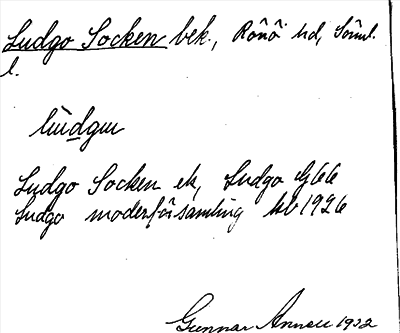 Ludgo Socken bek., Rönö hd, Söml.
l.
lùdgω
Ludgo Socken ek, Ludgo G66
Ludgo moderförsamling kb 1926
Gunnar 1932